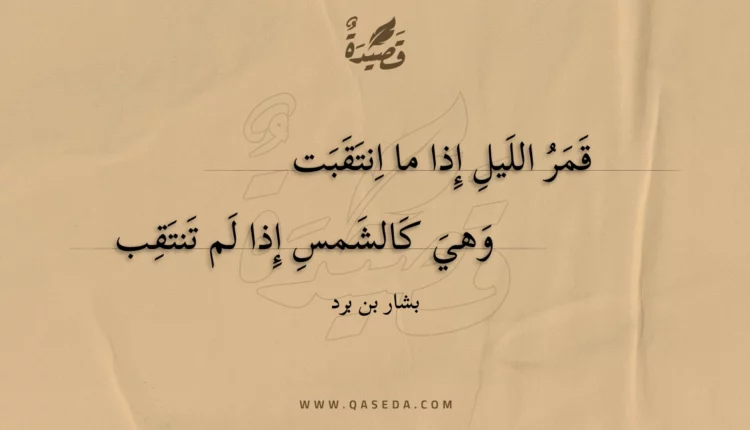 قَصِيْدَةٌ
قَمَرُ اللَيلِ إِذا ما اِنتَقَبَت
وَهيَ كَالشَمسِ إِذا لَم تَنتَقِب
بشار بن برد
WWW.QASEDA.COM